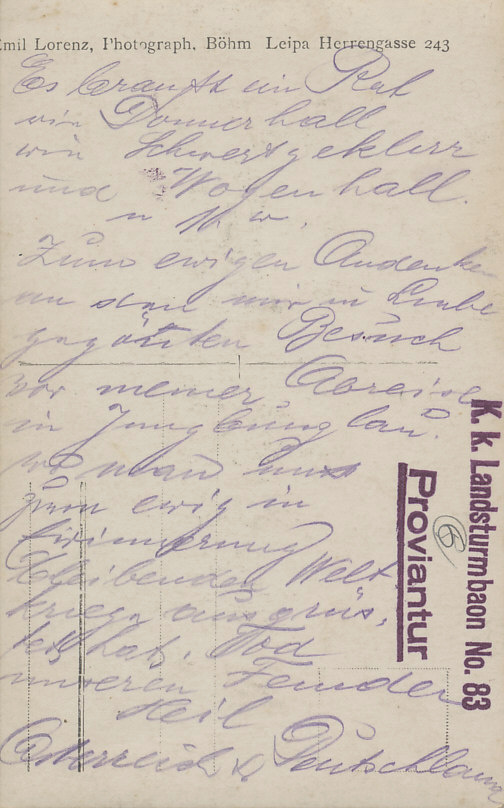 Emil Lorenz, Photograph, Böhm Leipa Herrengasse 243
Es braust ein Ruf
wie Donnerhall
wie Schwertgeklirr
und Wogenhall.
u s w.
Zum ewigen Andenken
an den mir in Liebe
gegönnten Besuch
vor meiner Abreise
in Jungbunzlau.
wo man uns
zum ewig in
Erinnerung
bleibenden Welt
kriege ausgerüs,
tet hat. Tod
unseren Feinden
Heil
Österreich & Deutschland
K. k. Landsturmbaon No. 83
Proviantur